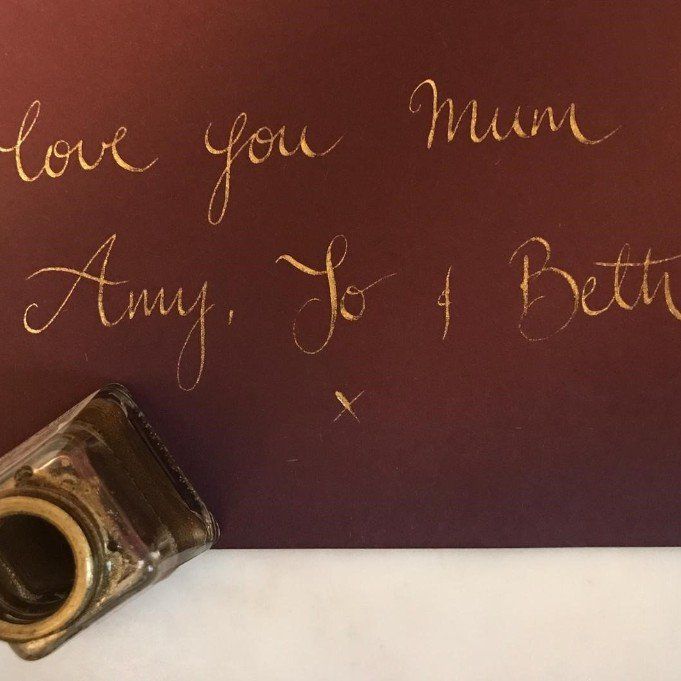 love you Mum
Amy, Jo & Beth
x